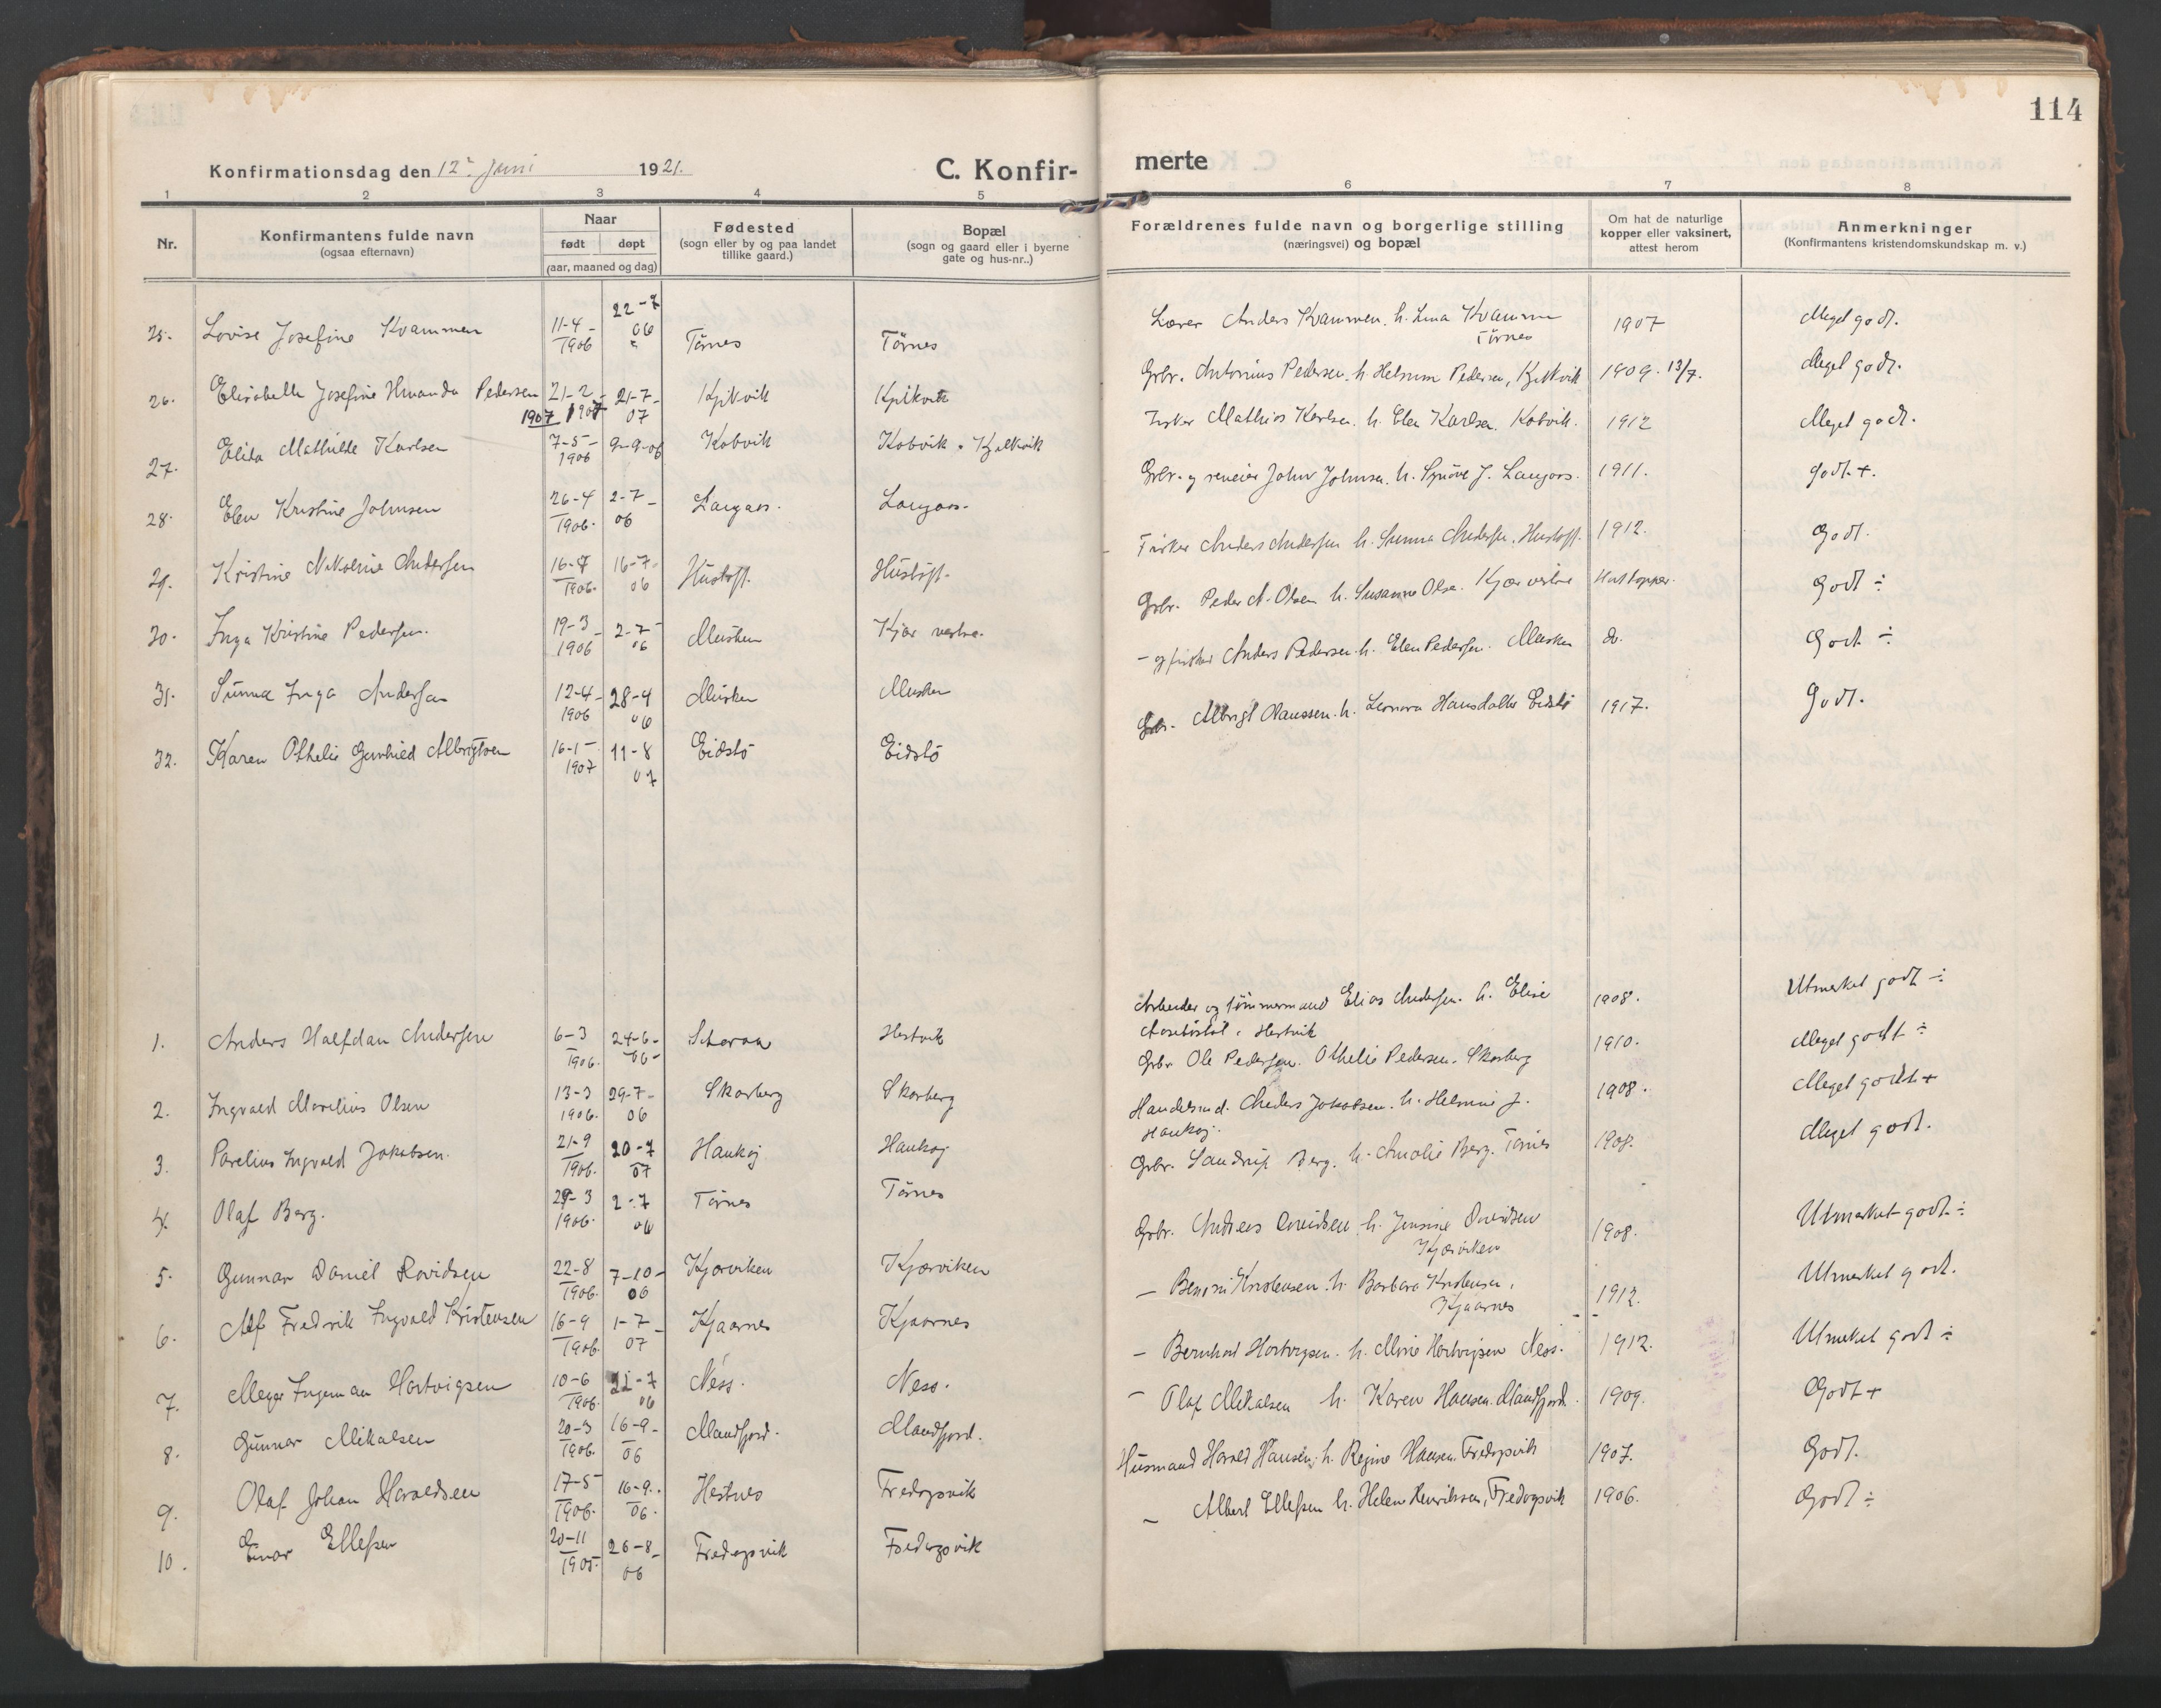 114
Konfirmationsdag den 12. Juni 1921.
C. Konfir-
merte
1 2 3 4 5 6 7 8
Nr.
Konfirmantens fulde navn
(ogsaa efternavn)
Naar
født døpt
(aar, maaned og dag)
Fødested
(sogn eller by og paa landet
tillike gaard.)
Bopæl
(sogn og gaard eller i byerne
gate og hus-nr..)
Forældrenes fulde navn og borgerlige stilling
(næringsvei) og bopæl
Om hat de naturlige
kopper eller vaksinert,
attest herom
Anmerkninger
(Konfirmantens kristendomskundskap m. v.)
25. Lovise Josefine Kvammen 11-4-1906 22-7 06 Tørnes Tørnes Lærer Anders Kvammen. h. Lina Kvammen Tørnes 1907 Meget godt.
26. Elisabeth Josefine Pedersen 21-2-1907 1907 21-7-07 Kjelkvik Grbr. Antonius Pedersen. h. Pedersen, Kjelkvik 1909. 13/7. Meget godt.
27. Elida Mathilde Karlsen 7-5-1906 9-9-06 Kobvik Kobvik. Kjelkvik Fisker Mathias Karlsen. h. Elen Karlsen. Kobvik. 1912 Meget godt.
28. Elen Kristine Johnsen 26-4 1906. 2-7-06 Langaas. Langaas. Grbr. og reneier John Johnsen. h. Synøve J. Langaas. 1911. Godt+.
29. Kristine Nikoline Andersen 16-4 1906. 16-7-06 Husloft. Husloft. Fisker Anders Andersen h. Sunna Andersen. Husloft. 1912. Godt.
30. Inga Kristine Pedersen. 19-3-1906 2-7-06 Musken Kjær vestre. Grbr. Peder A. Olsen h. Susanne Olsen. Kjær vestre Hat kopper. Godt ÷
31. Sunna Inga Andersen 12-4-1906 28-4 06 Musken Musken - og fisker Anders Pedersen. h. Elen Pedersen. Musken do. Godt ÷
32. Karen Othelie Gunhild Albrigtsen 16-1-1907 11-8 07 Eidstø Eidstø Grbr. Albrigt Olaussen. h. Leonora Hansdatter Eidstø 1917. Godt.
1. Anders Halfdan Andersen 6-3 1906. 24-6-06- Hestvik Arbeider og tømmermand Elias Andersen. h. Elise
Hestvik 1908. Utmerket godt ÷
2. Ingvald Marelius Olsen 13-3 1906. 29-7-06 Skarberg Skarberg Grbr Ole Pedersen. Othelie Pedersen. Skarberg 1910. Meget godt ÷
3. Parelius Ingvald Jakobsen. 21-9 1906. 20-7 07 Haukøj Haukøj Handelsmd. Anders Jakobsen. h. Helmine J.
Haukøj. 1908. Meget godt+
4. Olaf Berg. 29-3 1906. 2-7 06 Tørnes Tørnes Grbr. Berg. h. Amalie Berg. Tørnes 1908. Meget godt.
5. Gunnar Daniel Davidsen 22-8 1906. 7-10-06 Kjærviken Kjærviken Grbr. Andreas Davidsen h. Jensine Davidsen
Kjærviken 1908. Utmerket godt ÷
6. Alf Fredrik Ingvald Kristensen 16-9 1906. 1-7-07 Kjaarnes Kjaarnes - Benoni Kristensen. h. Barbara Kristensen,
Kjaarnes 1912. Utmerket godt.
7. Meyer Ingeman Hartvigsen 10-6 1906. 21-7 06 Ness. Ness. - Bernhard Hartvigsen. h. Mine Hartvigsen Ness. 1912. Utmerket godt ÷
8. Gunnar Mikalsen 20-3 1906. 16-9-06 Mandfjord. Mandfjord. - Olaf Mikalsen h. Karen Hansen. Mandfjord. 1909. Godt+
9. Olaf Johan Haraldsen 17-5 1906. 16-9. 06. Hestnes Fredagsvik Husmand Harald Hansen. h. Regine Hansen. Fredagsvik 1907. Godt.
10. Einar Ellefsen 20-11 1905. 26-8-06 Fredagsvik Fredagsvik - Albert Ellefsen h. Helene Henriksen, Fredagsvik 1906. Godt ÷